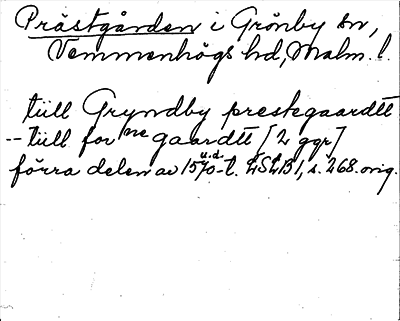 Prästgården i Grönby sn,
Vemmenhögs hd, Malm. l.
tüll Gryndby prestegaardtt
-- tüll for ne gaardtt [2 ggr]
förra delen av 1570-t. u.d. LSLB1, s. 268. orig.